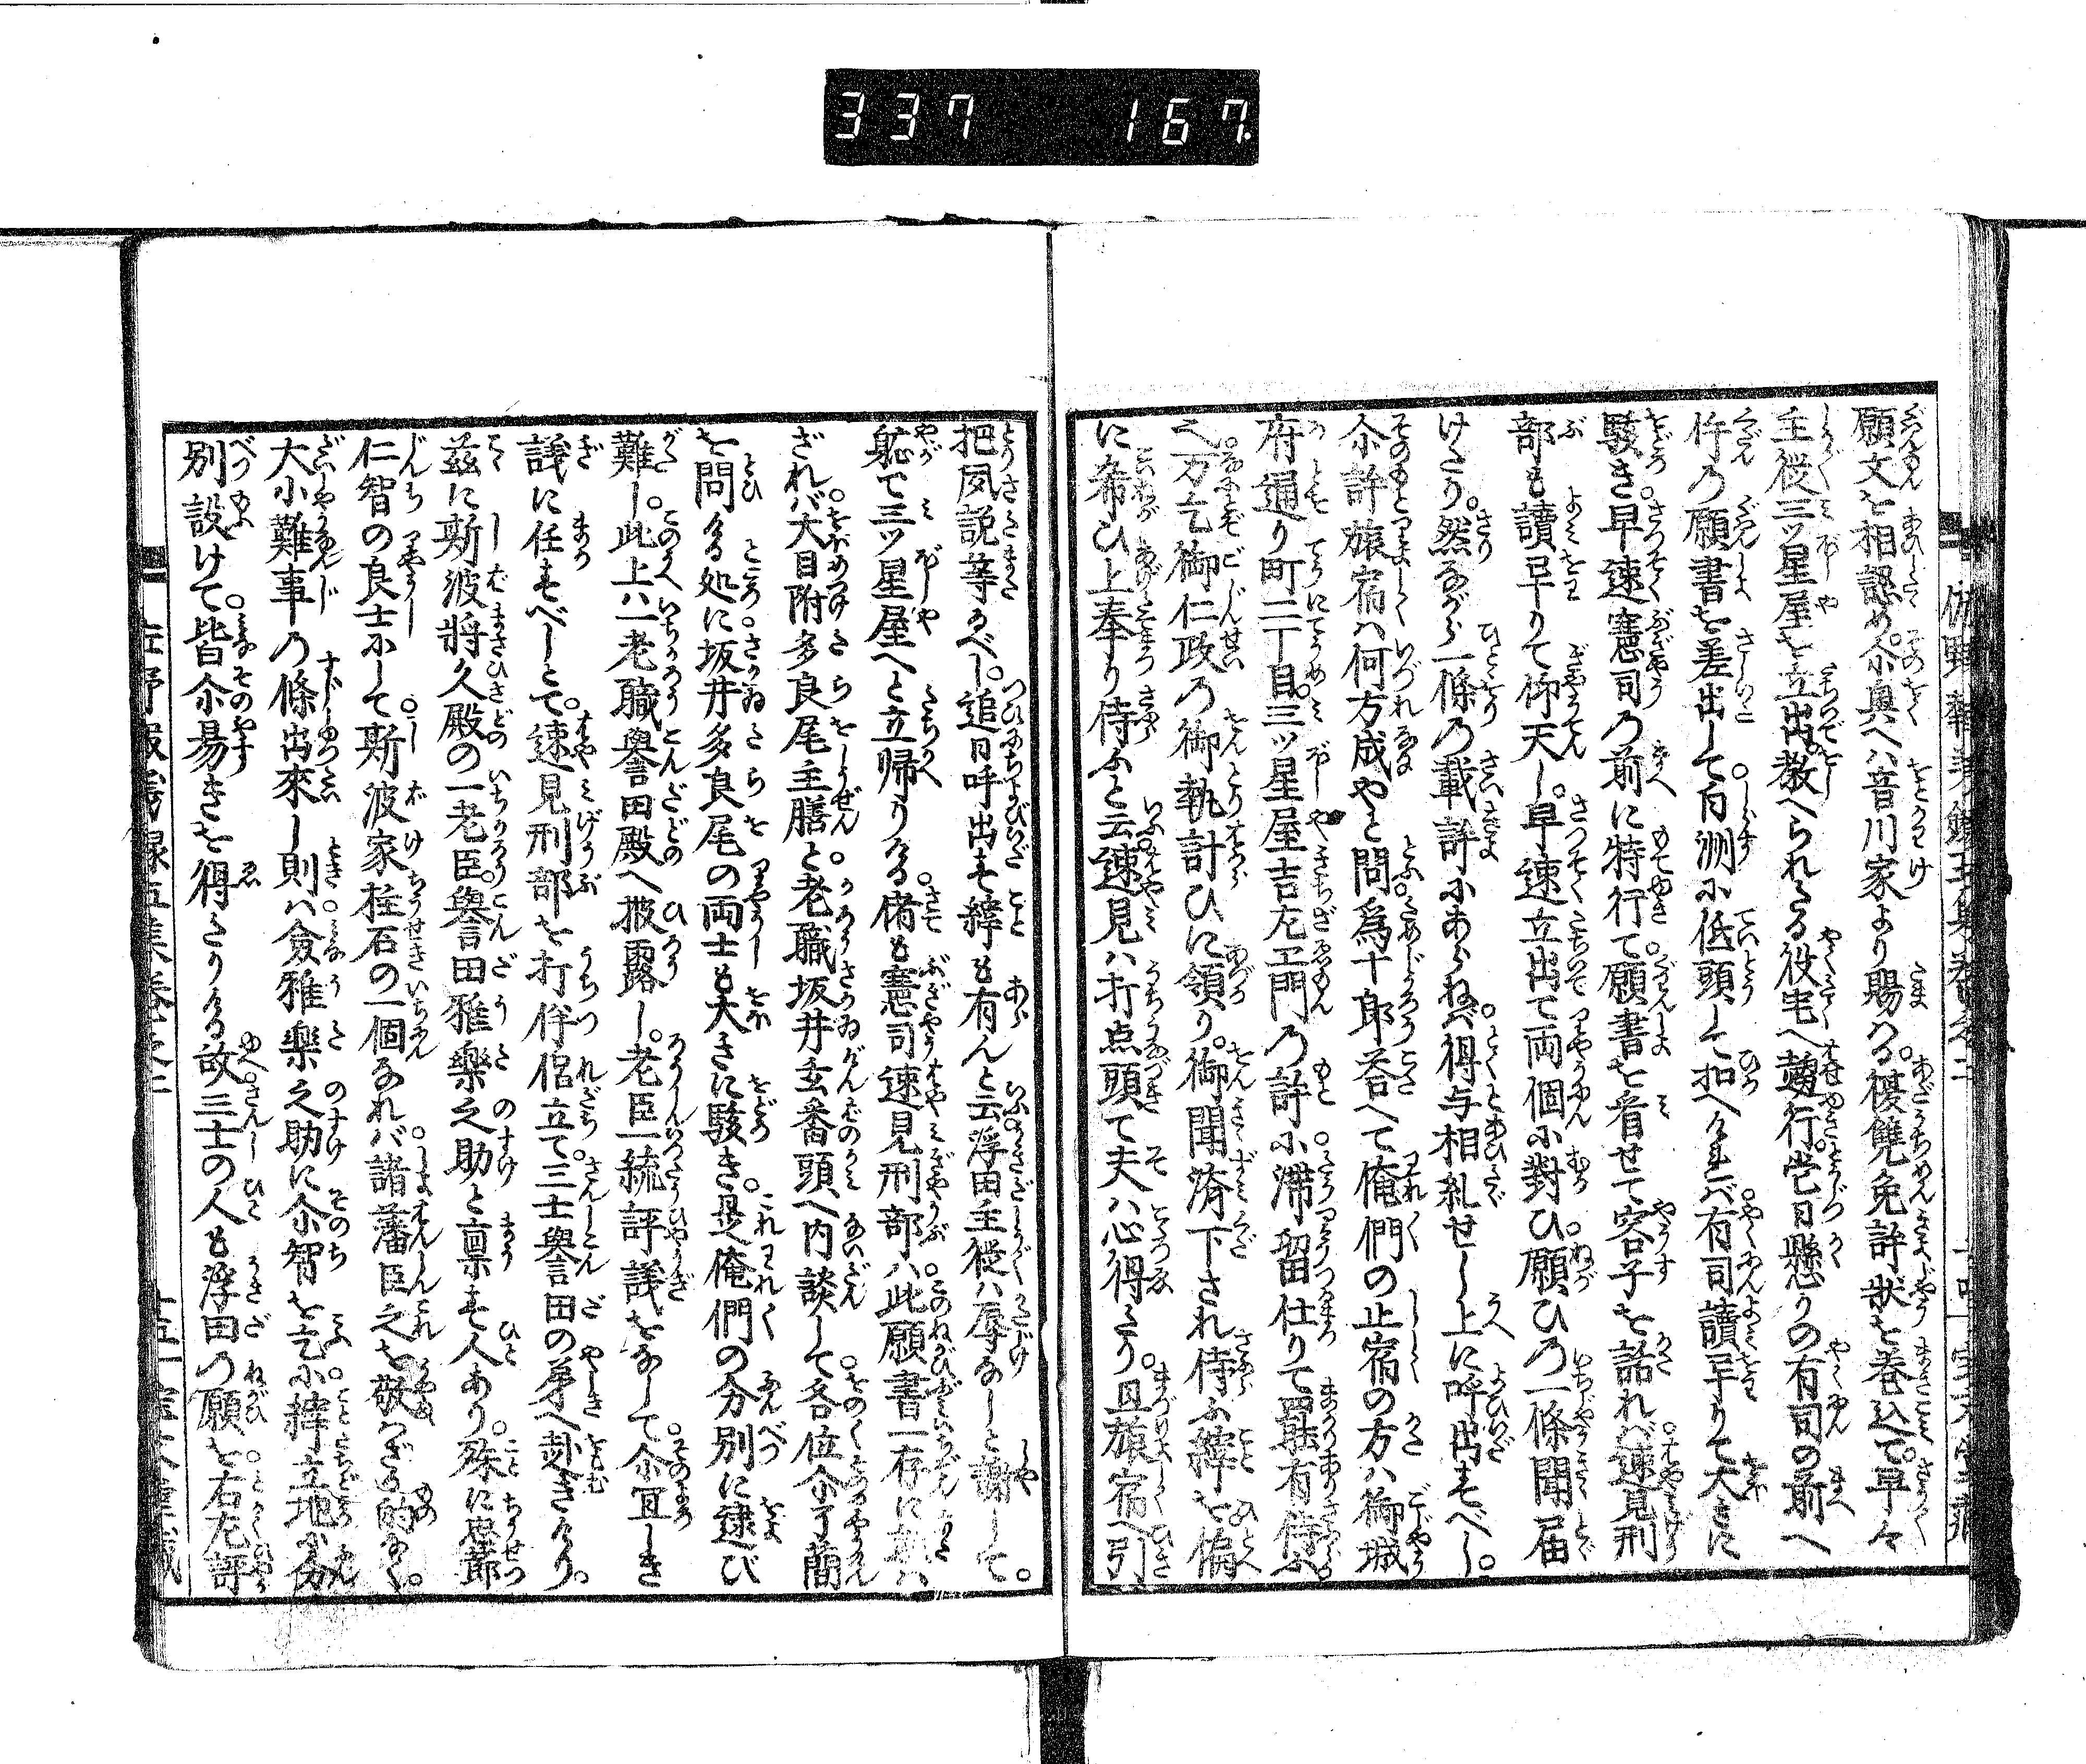 337 167
願文を相認め。尓奥へハ音川家より賜ハる。復讐免許状を巻込て。早々
主従三ツ星屋を立出。教へられたる役宅へ趨行。当日懸りの有司の前へ
件の願書を差出して。白洲小低頭して扣へける。有司讀畢りて大きに
駭き。早速憲司の前に特行て。願書を看せて容子を詰れバ。速見刑
部も讀畢りて仰天し。早速立出て両個小對ひ。願ひの一條聞届
けたり。然ながら一條の裁許小あらねバ。得与相糺せし上に呼出すべし。
尓許旅宿ハ何方成やと問。為十郎荅へて俺們の止宿の方ハ。御城
府通り町二丁目。三ツ星屋吉左エ門の許小。滞留仕りて罷有侍ふ。
何万乞御仁政の御執計ひに領り。御聞済下され侍ふ縡を偏
に希ひ上奉り侍ふと云。速見ハ打点頭て夫ハ心得たり。且旅宿へ引
把夙説等べし。追日呼出す縡も有んと云。浮田主従ハ辱なしと謝して。
躮て三ツ星屋へと立帰りける。偖も憲司速見刑部ハ。此願書一存に
ざれバ。大目附多良尾主膳と。老職坂井玄番頭へ内談して。各位尓了簡
を問ける処に。坂井多良尾の両士も大きに駭き。是俺們の分別に逮び
難し。此上ハ一老職誉田殿へ披露し。老臣一統評議をなして。尓宜しき
議に任すべしとて。速見刑部を打伴侶立て。三士誉田の第へ赴きけり。
茲に斯波将久殿の一老臣。誉田雅樂之助と稟す人あり。殊に忠節
仁智の良士小して。斯波家柱石の一個なれバ。諸藩臣之を敬ハざる的なく。
大小難事の條出来し則ハ。僉雅樂之助に尓智を乞小。縡立地小分
別設けて。皆尓易きを得たりける故。三士の人も浮田の願を。右左評